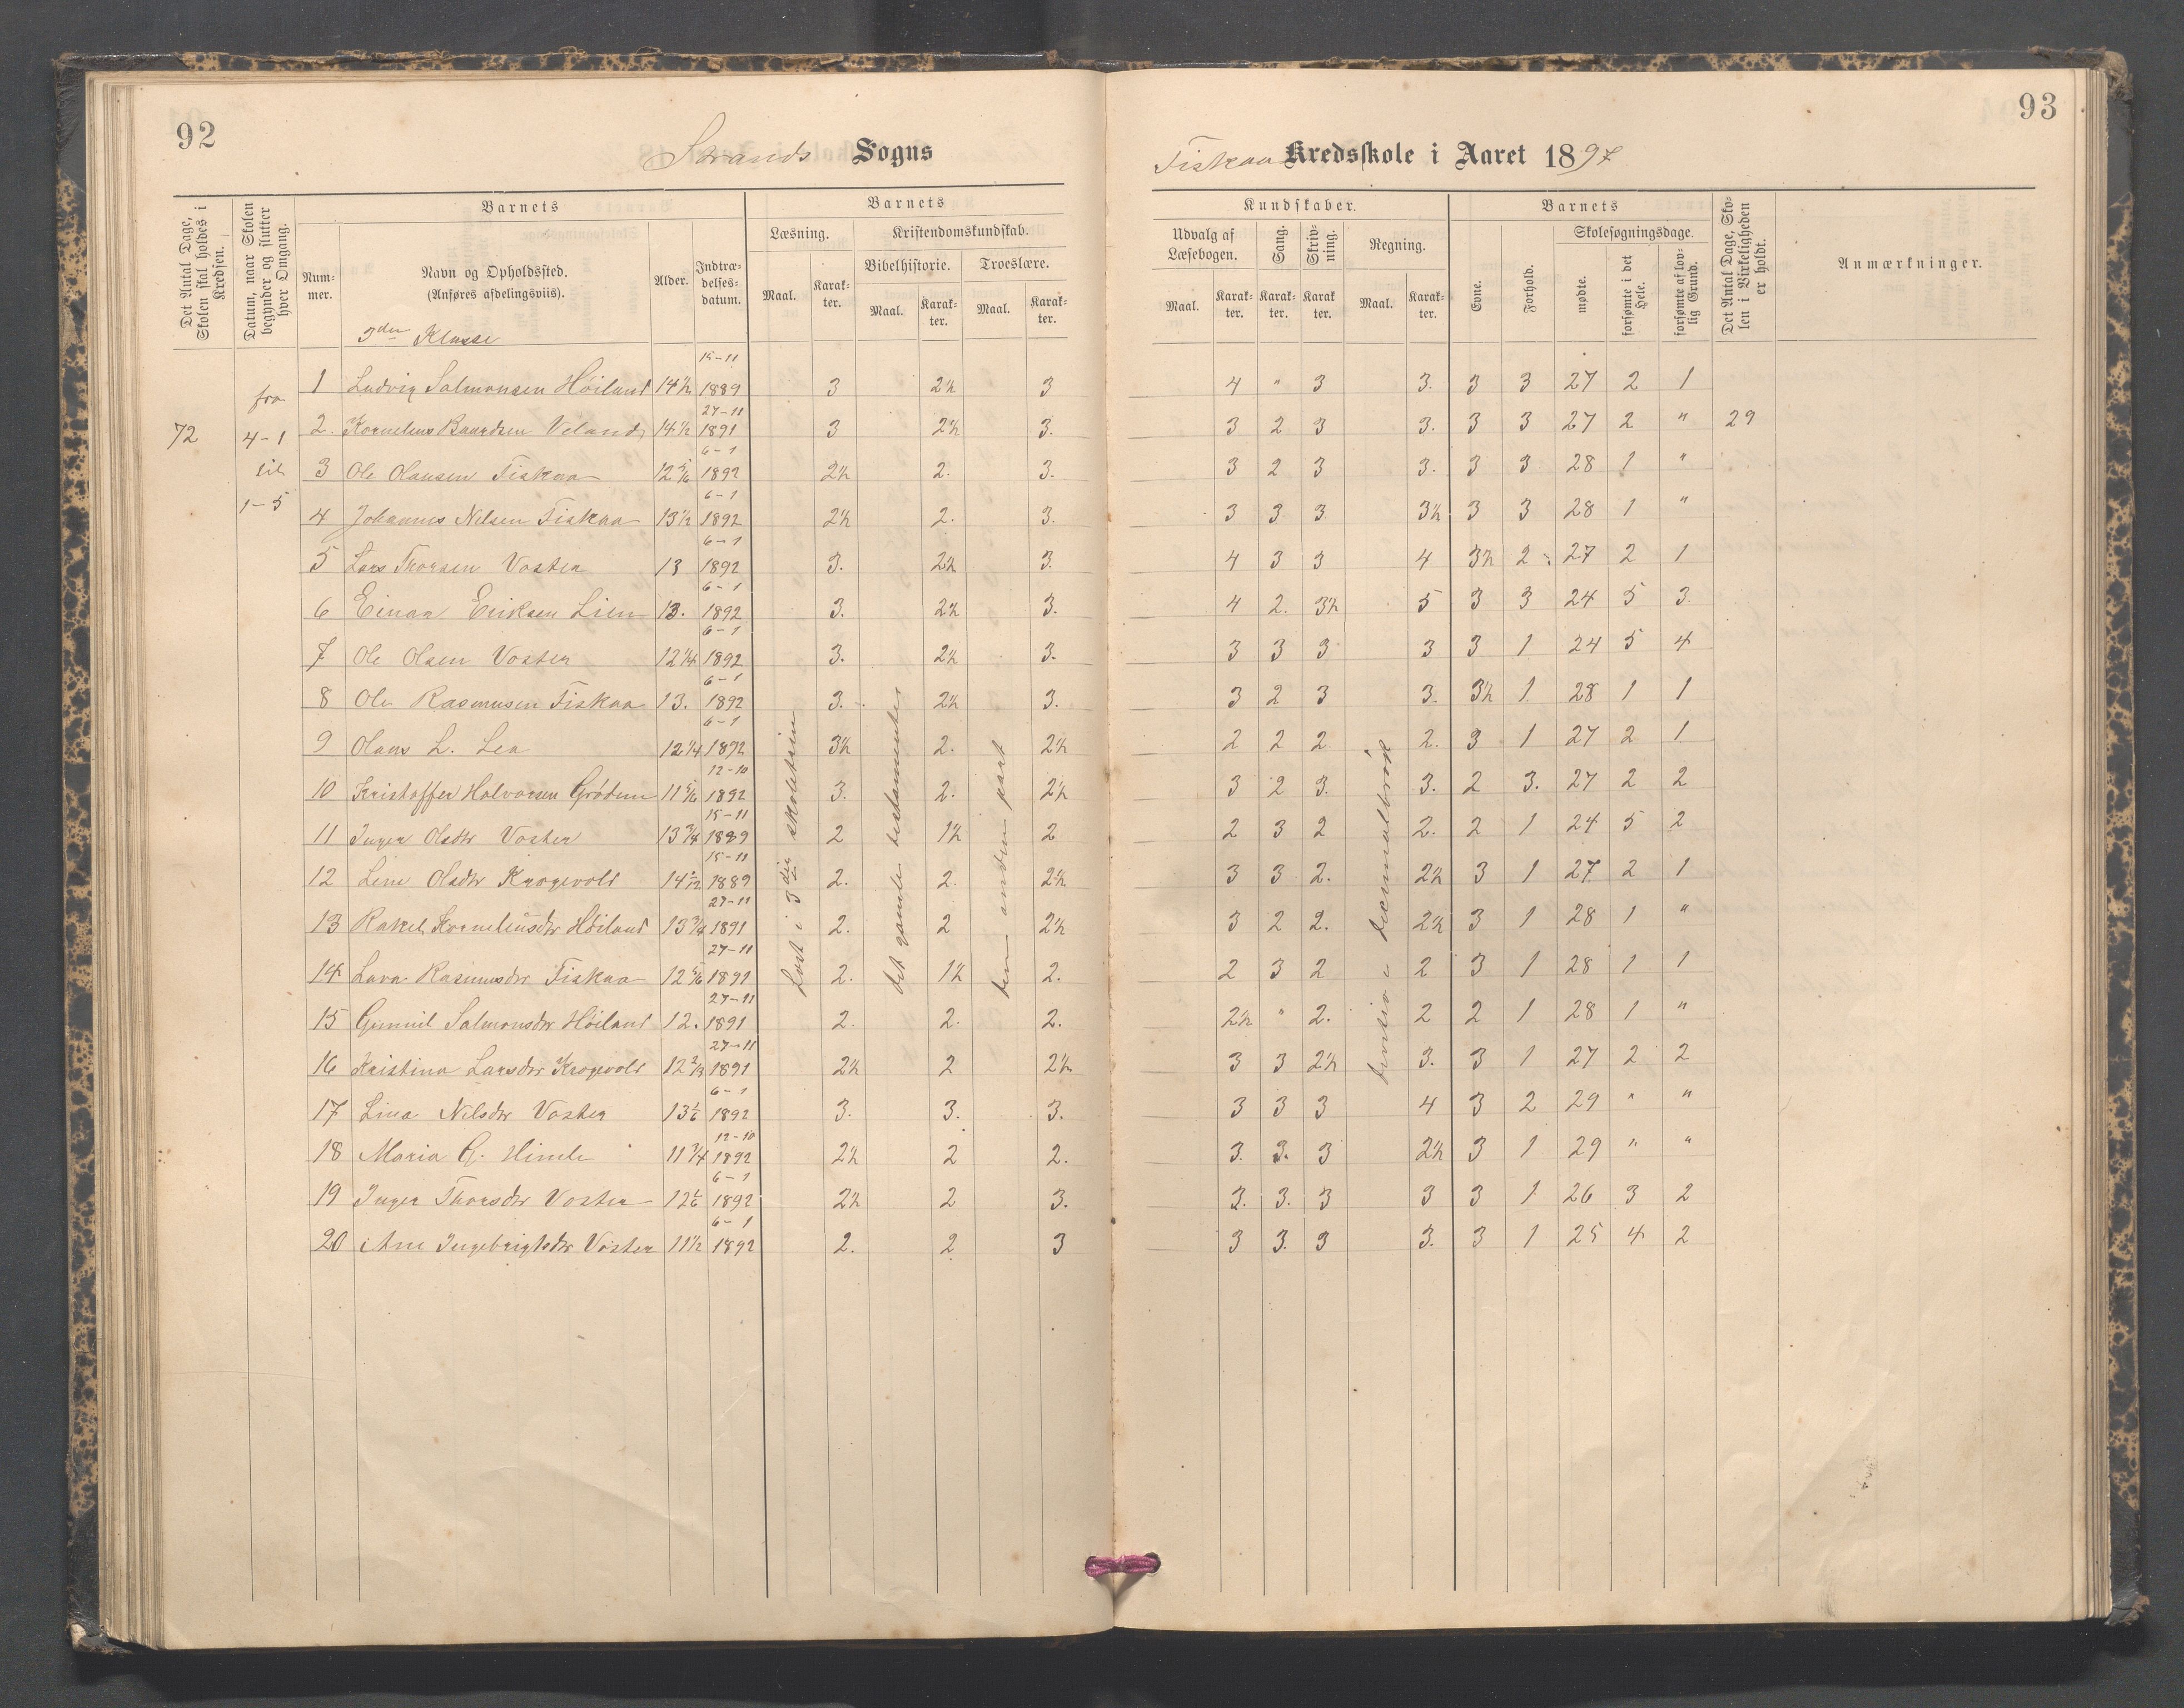 92
Strands Sogns
Det Antal Dage, Skolen skal holdes i Kredsen.
Datum, naar Skolen begynder og slutter hver Omgang.
Barnets
Num-mer.
Navn og Opholdssted.
(Anføres afdelingsviis).
Alder.
Indtræ-delses-datum.
Barnets
Læsning.
Kristendomskundskab.
Bibelhistorie.
Troeslære.
Maal.
Karak-ter.
Maal.
Karak-ter.
Maal.
Karak-ter.
3die Klasse
72
fra
4-1
til
1-5
1 Ludvig Salmonsen Höiland 14½ 15-11 1889 3 2½ 3
2. Kornelius Baardsen Veland 14½ 27-11 1891 3 2½ 3.
3 Ole Olausen Fiskaa 12 5/6 6-1 1892 2½ 2. 3.
4 Johannes Nilsen Fiskaa 13½ 6-1 1892 2½ 2. 3.
5 Lars Thorsen Voster 13 6-1 1892 3. 2½ 3.
6 Einar Eriksen Lien 13. 6-1 1892 3. 2½ 3.
7 Ole Olsen Voster 12¼ 6-1 1892 3. 2½ 3.
8 Ole Rasmusen Fiskaa 13. 6-1 1892 3. 2½ 3.
9 Olaus L. Lea 12¼ 6-1 1892 3½ 2. 2½
10 Kristoffer Halvorsen Grödem 11 5/6 12-10 1892 3. 2. 2½
11 Inger Olsdtr Voster 13¾ 15-11 1889 2 1½ 2
12 Line Olsdtr Krogevold 14 5/12 15-11 1889 2. 2. 2½
13 Rakel Korneliusdtr Höiland 13¾ 27-11 1891 2. 2 2½
14 Lava Rasmusdtr Fiskaa 12 5/6 27-11 1891 2. 1½ 2.
15 Gunnil Salmonsdtr Höiland 12. 27-11 1891 2. 2. 2.
16 Kristina Larsdtr Krogevold 12 2/3 27-11 1891 2½ 2 2½
17 Lina Nilsdtr Voster 13 1/6 6-1 1892 3. 3. 3.
18 Maria G. Himle 11¾ 12-10 1892 2½ 2 2.
19 Inger Thorsdtr Voster 12 1/6 6-1 1892 2½ 2 3.
20 Ane Ingebrigtsdtr Voster 11½ 6-1 1892 2. 2 3
Læst i 3die skoletrin
det gamle testamente
den anden part
93
Fiskaa Kredsskole i Aaret 1897
Kundskaber.
Udvalg af Læsebogen.
Sang.
Skriv-ning.
Regning.
Maal.
Karak-ter.
Karak-ter.
Karak ter.
Maal.
Karak-ter.
Barnets
Evne.
Forhold.
Skolesøgningsdage.
mødte.
forsømte i det Hele.
forsømte af lov-lig Grund.
Det Antal Dage, Sko-len i Virkeligheden er holdt.
Anmærkninger.
4 " 3 3. 3 3 27 2 1
3 2 3 3. 3 3 27 2 " 29
3 2 3 3. 3 3 28 1 "
3 3 3 3½ 3 3 28 1 "
4 3 3 4 3½ 2 27 2 1
4 2. 3½ 5 3 3 24 5 3
3 3 3 3 3 1 24 5 4
3 2 3 3. 3½ 1 28 1 1
2 2 2. 2. 3 1 27 2 1
3 2 3. 3. 2 3. 27 2 2
2 3 2 2. 2 1 24 5 2
3 3 2. 2½ 3 1 27 2 1
3 2 2. 2½ 3 1 28 1 "
2 3 2 2 3 1 28 1 1
2½ " 2. 2 2 1 28 1 "
3 3 2½ 3. 3 1 27 2 2
3 3 3 4 3 2 29 " "
3. 3. 3 2½ 3 1 29 " "
3. 3. 3 3 3 1 26 3 2
3 3. 3 3. 3 1 25 4 2
division i decimalbrök